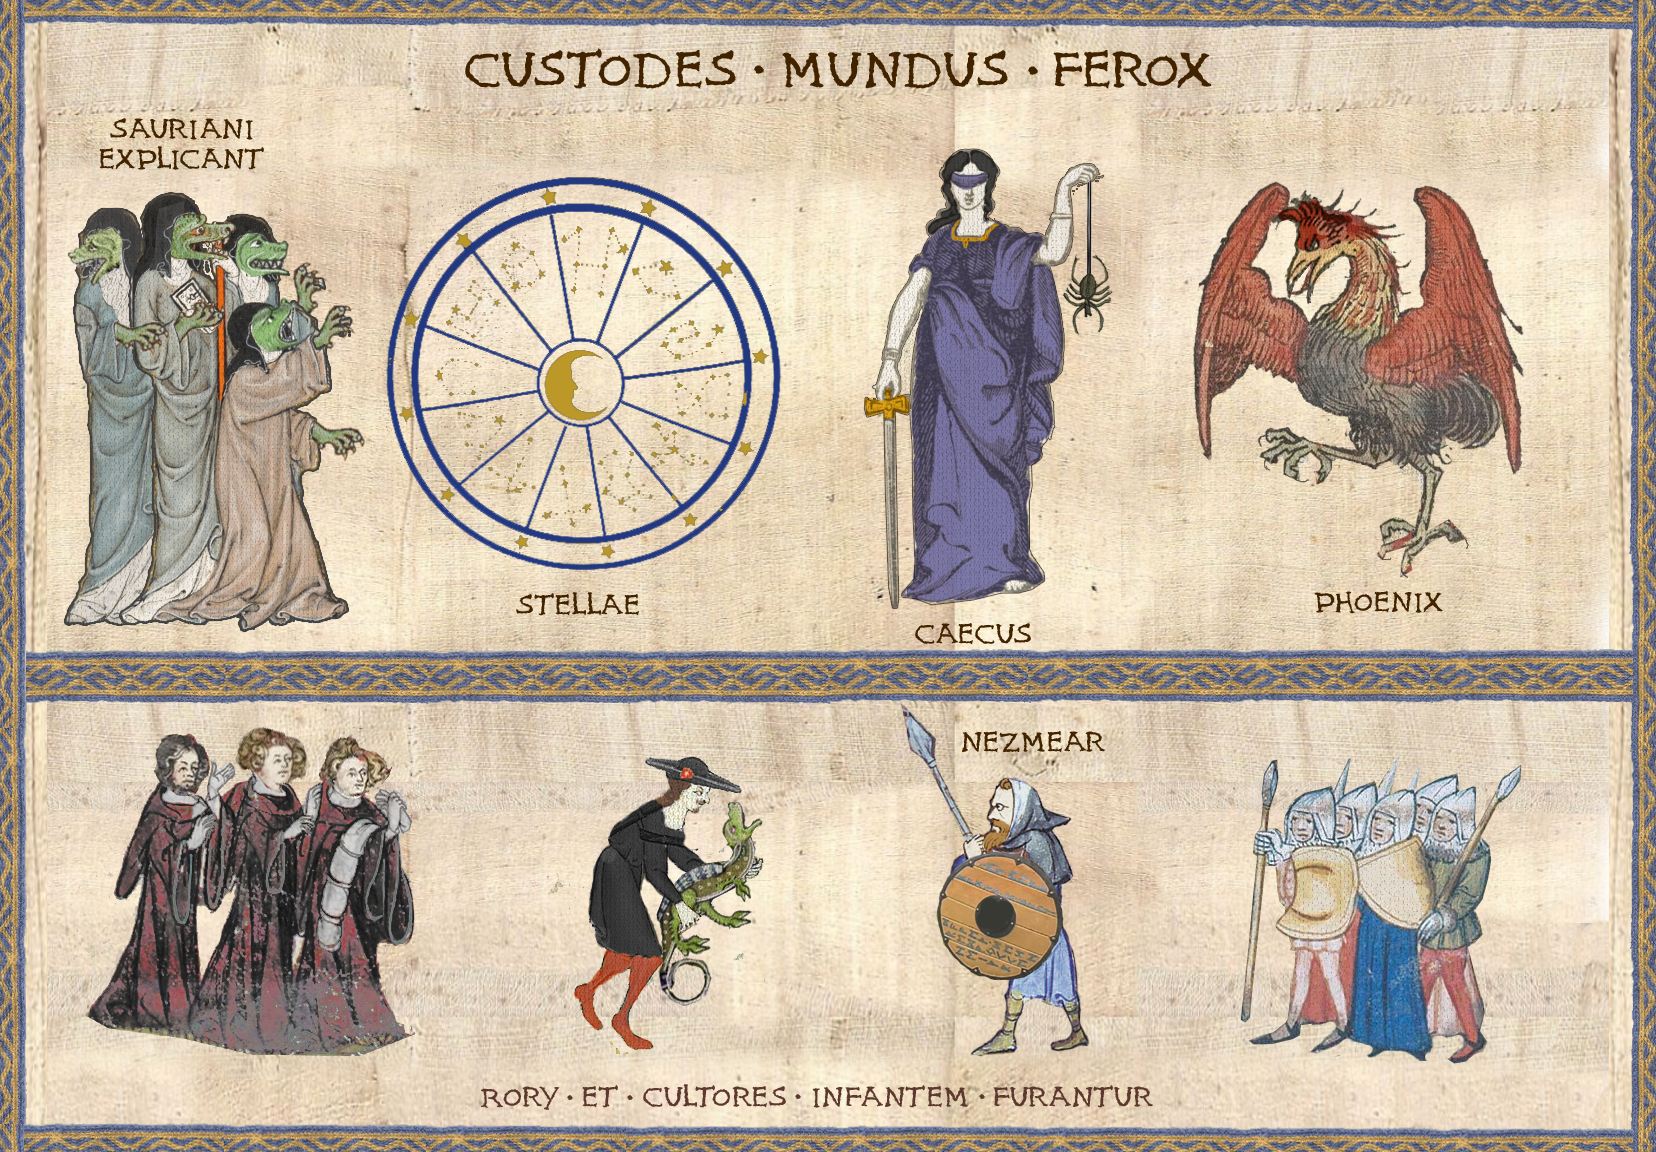 CUSTODES · MUNDUS · FEROX
SAURIANI
EXPLICANT
STELLAE
CAECUS
PHOENIX
NEZMEAR
RORY · ET · CULTORES · INFANTEM · FURANTUR